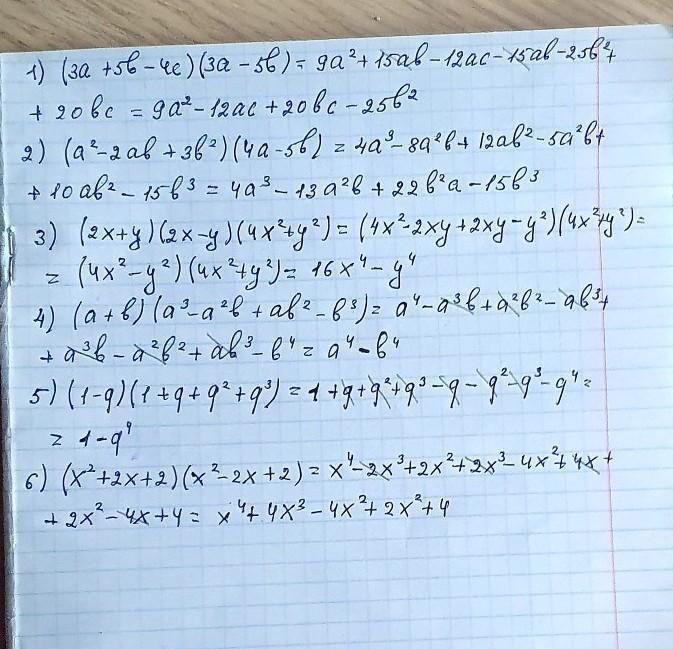 1) (3a + 5b - 4c)(3a - 5b) = 9a² + 15ab - 12ac - 15ab - 25b² +
+ 20bc = 9a² - 12ac + 20bc - 25b²
2) (a² - 2ab + 3b²)(4a - 5b) = 4a³ - 8a²b + 12ab² - 5a²b +
+ 10ab² - 15b³ = 4a³ - 13a²b + 22b²a - 15b³
3) (2x+y)(2x-y)(4x²+y²) = (4x² - 2xy + 2xy - y²)(4x²+y²) =
= (4x² - y²)(4x²+y²) = 16x⁴ - y⁴
4) (a+b)(a³ - a²b + ab² - b³) = a⁴ - a³b + a²b² - ab³ +
+ a³b - a²b² + ab³ - b⁴ = a⁴ - b⁴
5) (1-q)(1+q+q²+q³) = 1 + q + q² + q³ - q - q² - q³ - q⁴ =
= 1 - q⁴
6) (x² + 2x + 2)(x² - 2x + 2) = x⁴ - 2x³ + 2x² + 2x³ - 4x² + 4x +
+ 2x² - 4x + 4 = x⁴ + 4x³ - 4x² + 2x² + 4